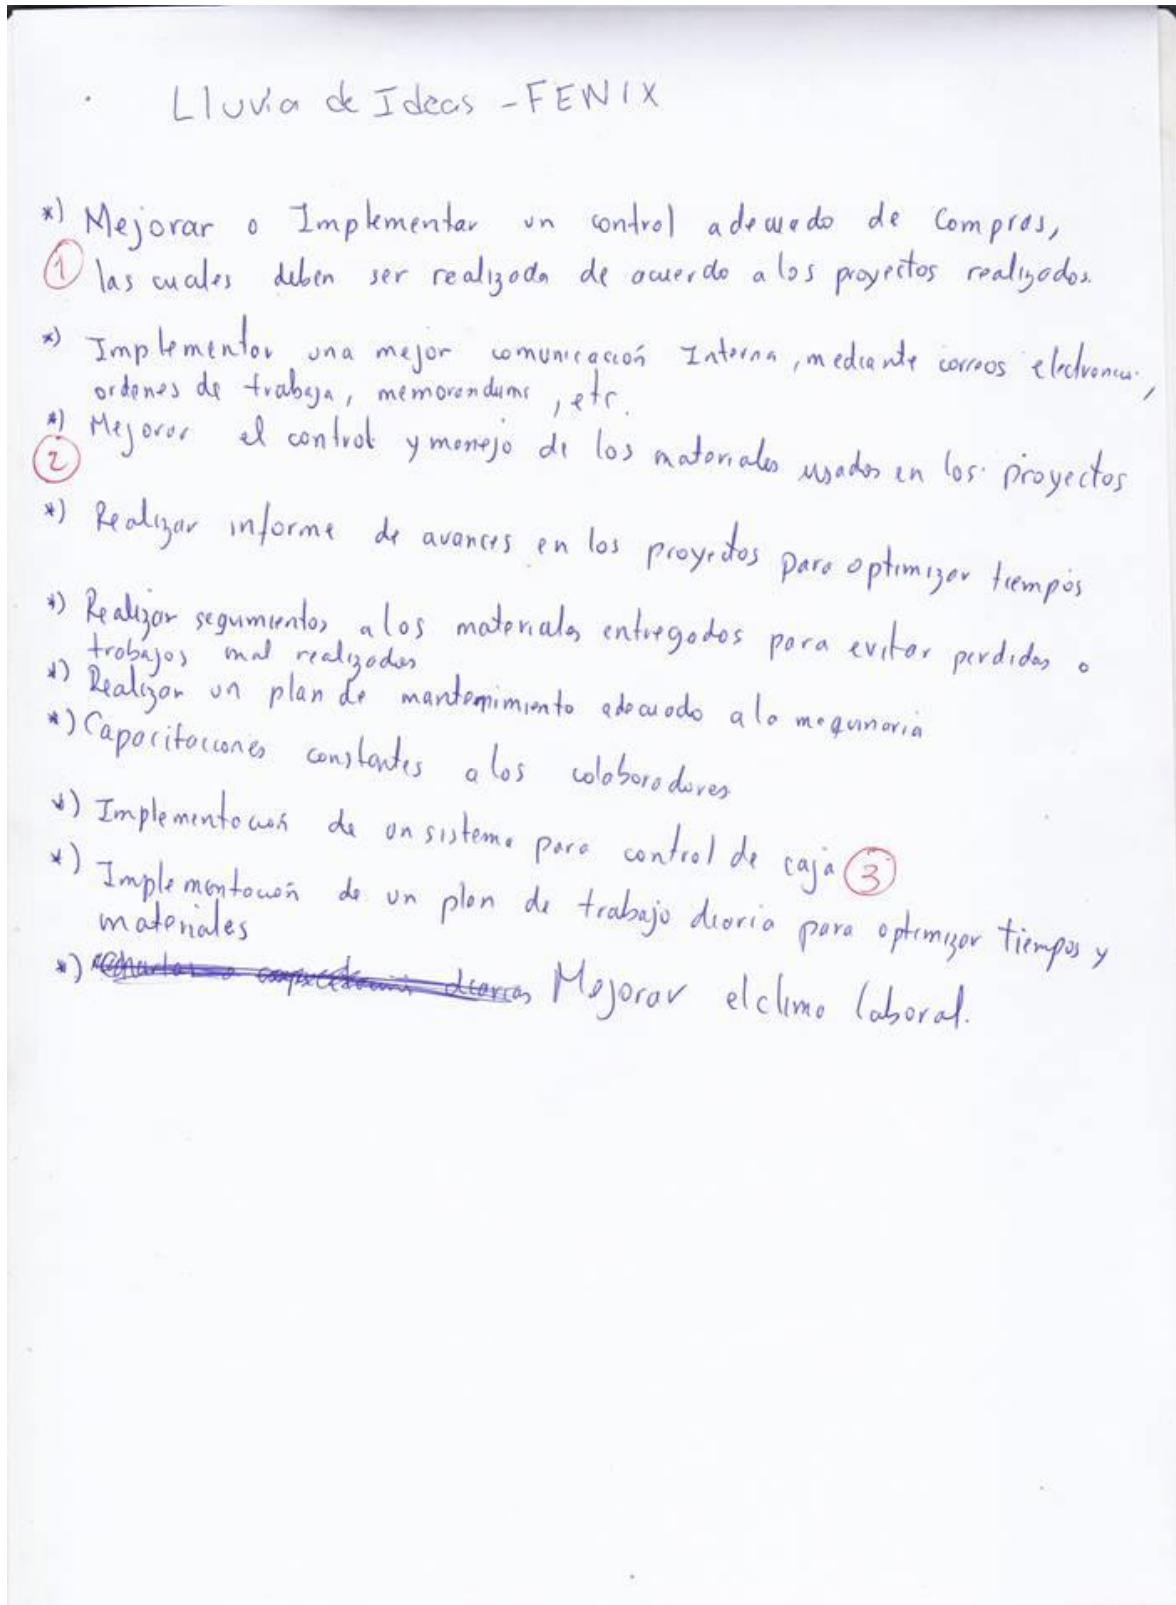 Lluvia de Ideas - FENIX
*) Mejorar o Implementar un control adecuado de Compras,
① las cuales deben ser realizada de acuerdo a los proyectos realizados.
*) Implementar una mejor comunicación Interna, mediante correos electronicos,
ordenes de trabajo, memorandums, etc.
*) Mejorar el control y manejo de los materiales usados en los proyectos
②
*) Realizar informe de avances en los proyectos para optimizar tiempos
*) Realizar seguimientos a los materiales entregados para evitar perdidas o
trabajos mal realizados
*) Realizar un plan de mantenimiento adecuado a la maquinaria
*) Capacitaciones constantes a los colaboradores
*) Implementación de un sistema para control de caja ③
*) Implementación de un plan de trabajo diario para optimizar tiempos y
materiales
*) diarias Mejorar el clima laboral.